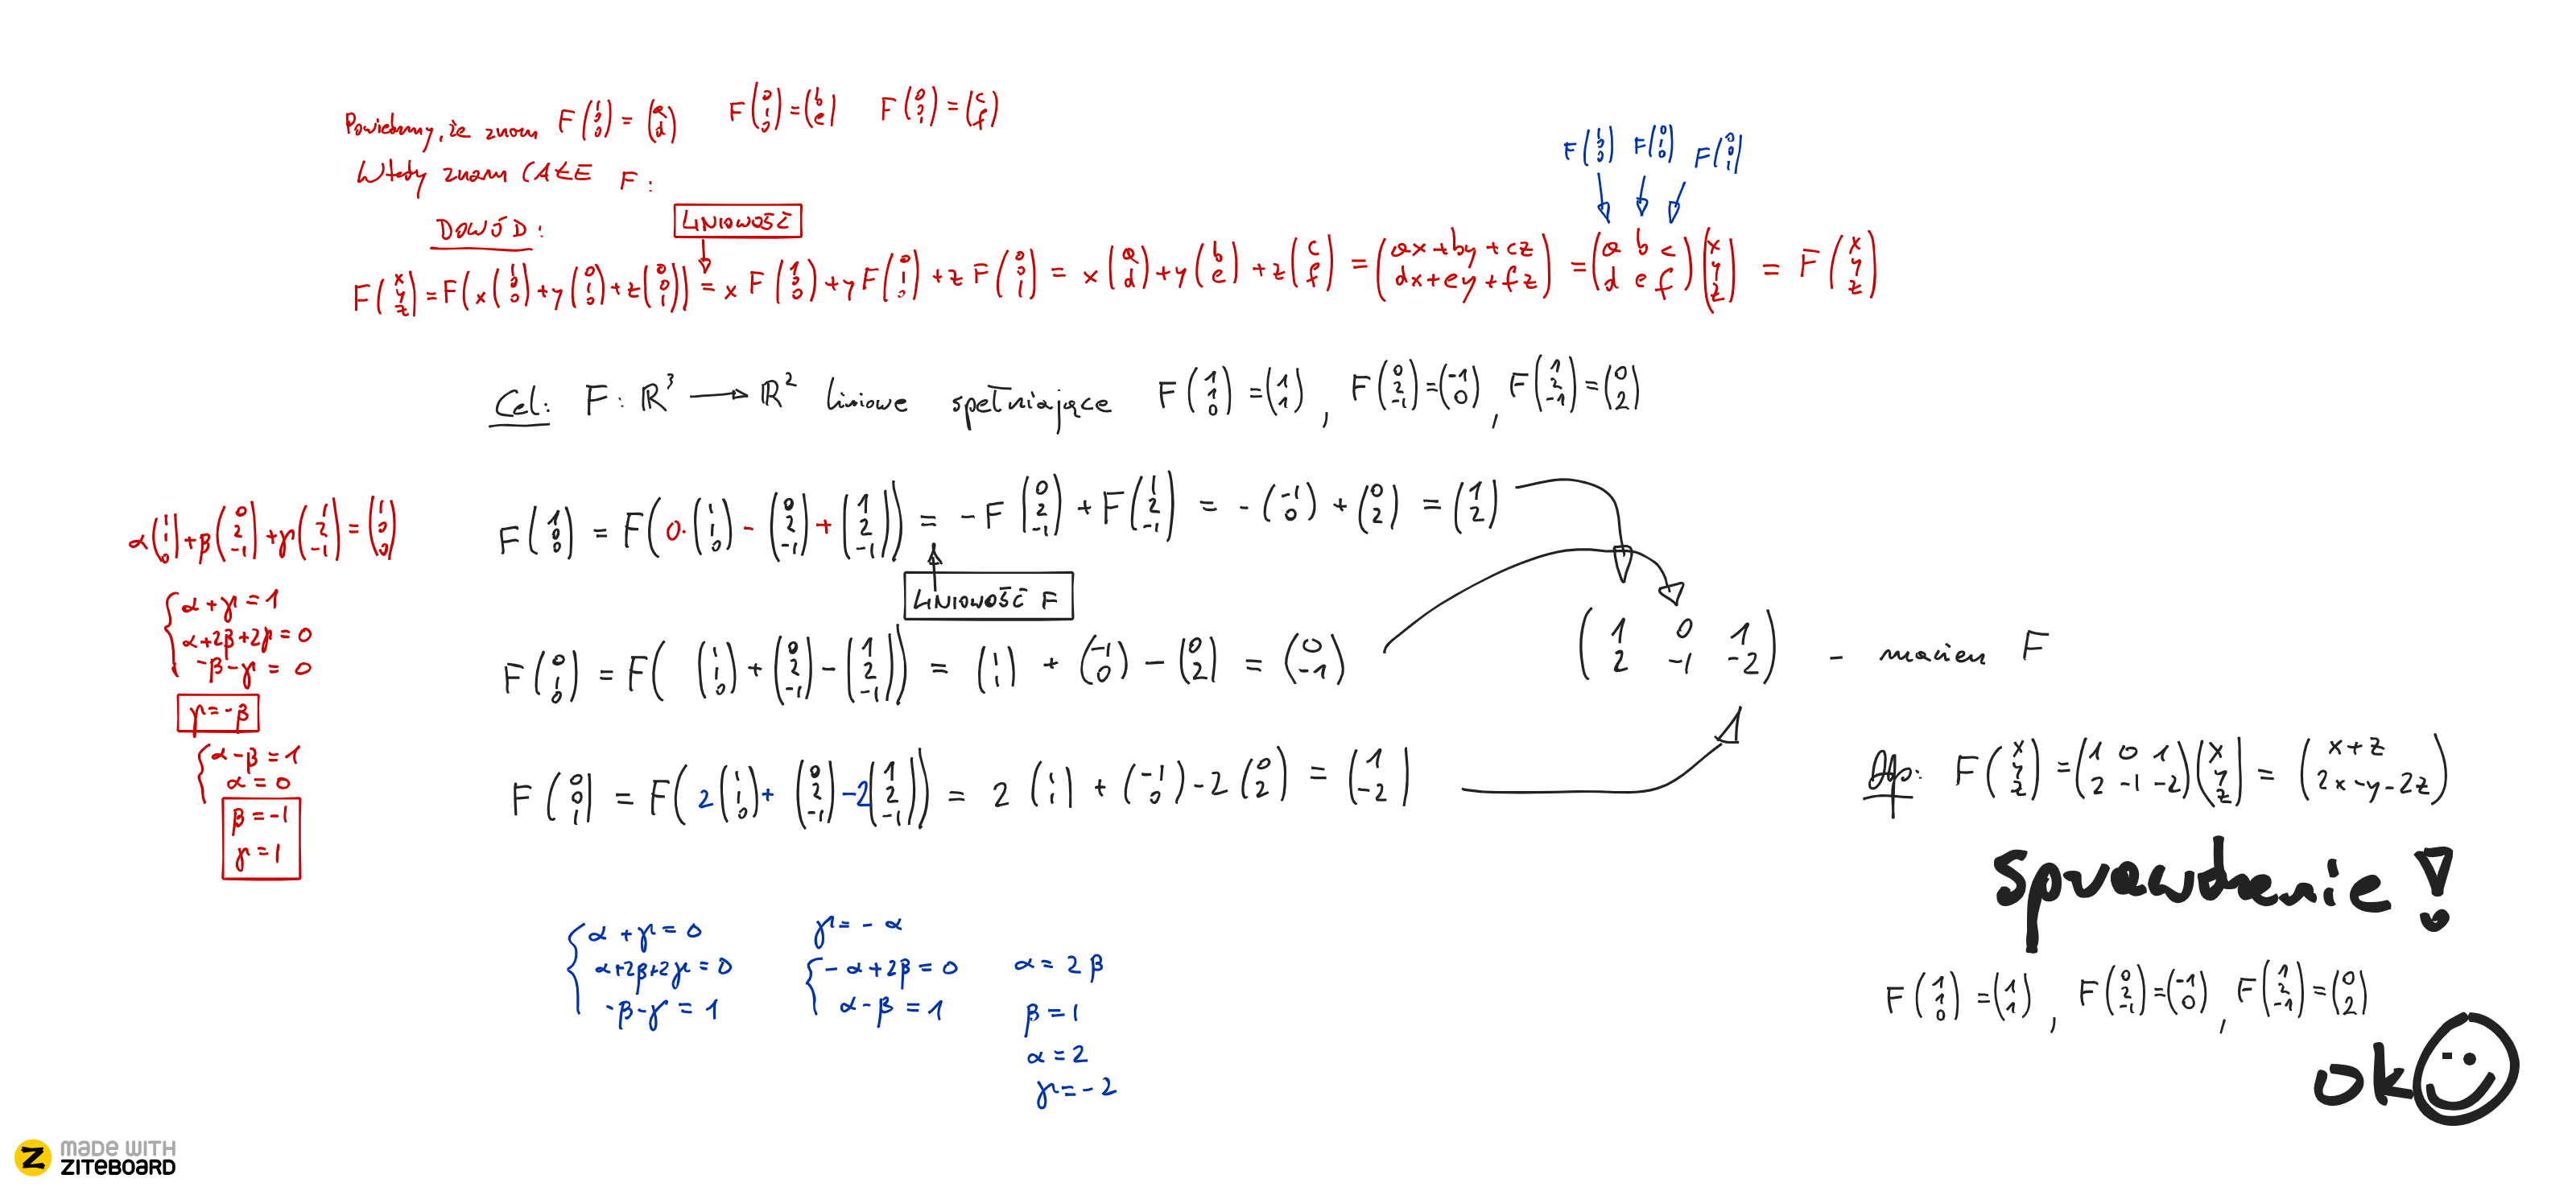 Powiedzmy, że znam F(1 0 0) = (a d) F(0 1 0) = (b e) F(0 0 1) = (c f)
Wtedy znam CAŁE F:
F(1 0 0) F(0 1 0) F(0 0 1)
DOWÓD: LINIOWOŚĆ
F(x y z) = F(x(1 0 0) + y(0 1 0) + z(0 0 1)) = x F(1 0 0) + y F(0 1 0) + z F(0 0 1) = x(a d) + y(b e) + z(c f) = (ax+by+cz dx+ey+fz) = (a b c d e f)(x y z) = F(x y z)
Cel: F: ℝ³ → ℝ² liniowe spełniające F(1 1 0) = (1 1), F(0 2 -1) = (-1 0), F(1 2 -1) = (0 2)
α(1 1 0) + β(0 2 -1) + γ(1 2 -1) = (1 0 0)
α+γ=1
α+2β+2γ=0
-β-γ=0
γ=-β
α-β=1
α=0
β=-1
γ=1
F(1 0 0) = F(0·(1 1 0) - (0 2 -1) + (1 2 -1)) = -F(0 2 -1) + F(1 2 -1) = -(-1 0) + (0 2) = (1 2)
LINIOWOŚĆ F
F(0 1 0) = F((1 1 0) + (0 2 -1) - (1 2 -1)) = (1 1) + (-1 0) - (0 2) = (0 -1)
(1 0 1 2 -1 -2) - macierz F
F(0 0 1) = F(2(1 1 0) + (0 2 -1) -2(1 2 -1)) = 2(1 1) + (-1 0) - 2(0 2) = (1 -2)
Odp: F(x y z) = (1 0 1 2 -1 -2)(x y z) = (x+z 2x-y-2z)
sprawdzenie!
α+γ=0
α+2β+2γ=0
-β-γ=1
γ=-α
-α+2β=0
α-β=1
α=2β
β=1
α=2
γ=-2
F(1 1 0) = (1 1), F(0 2 -1) = (-1 0), F(1 2 -1) = (0 2)
ok
MADE WITH
ZITEBOARD